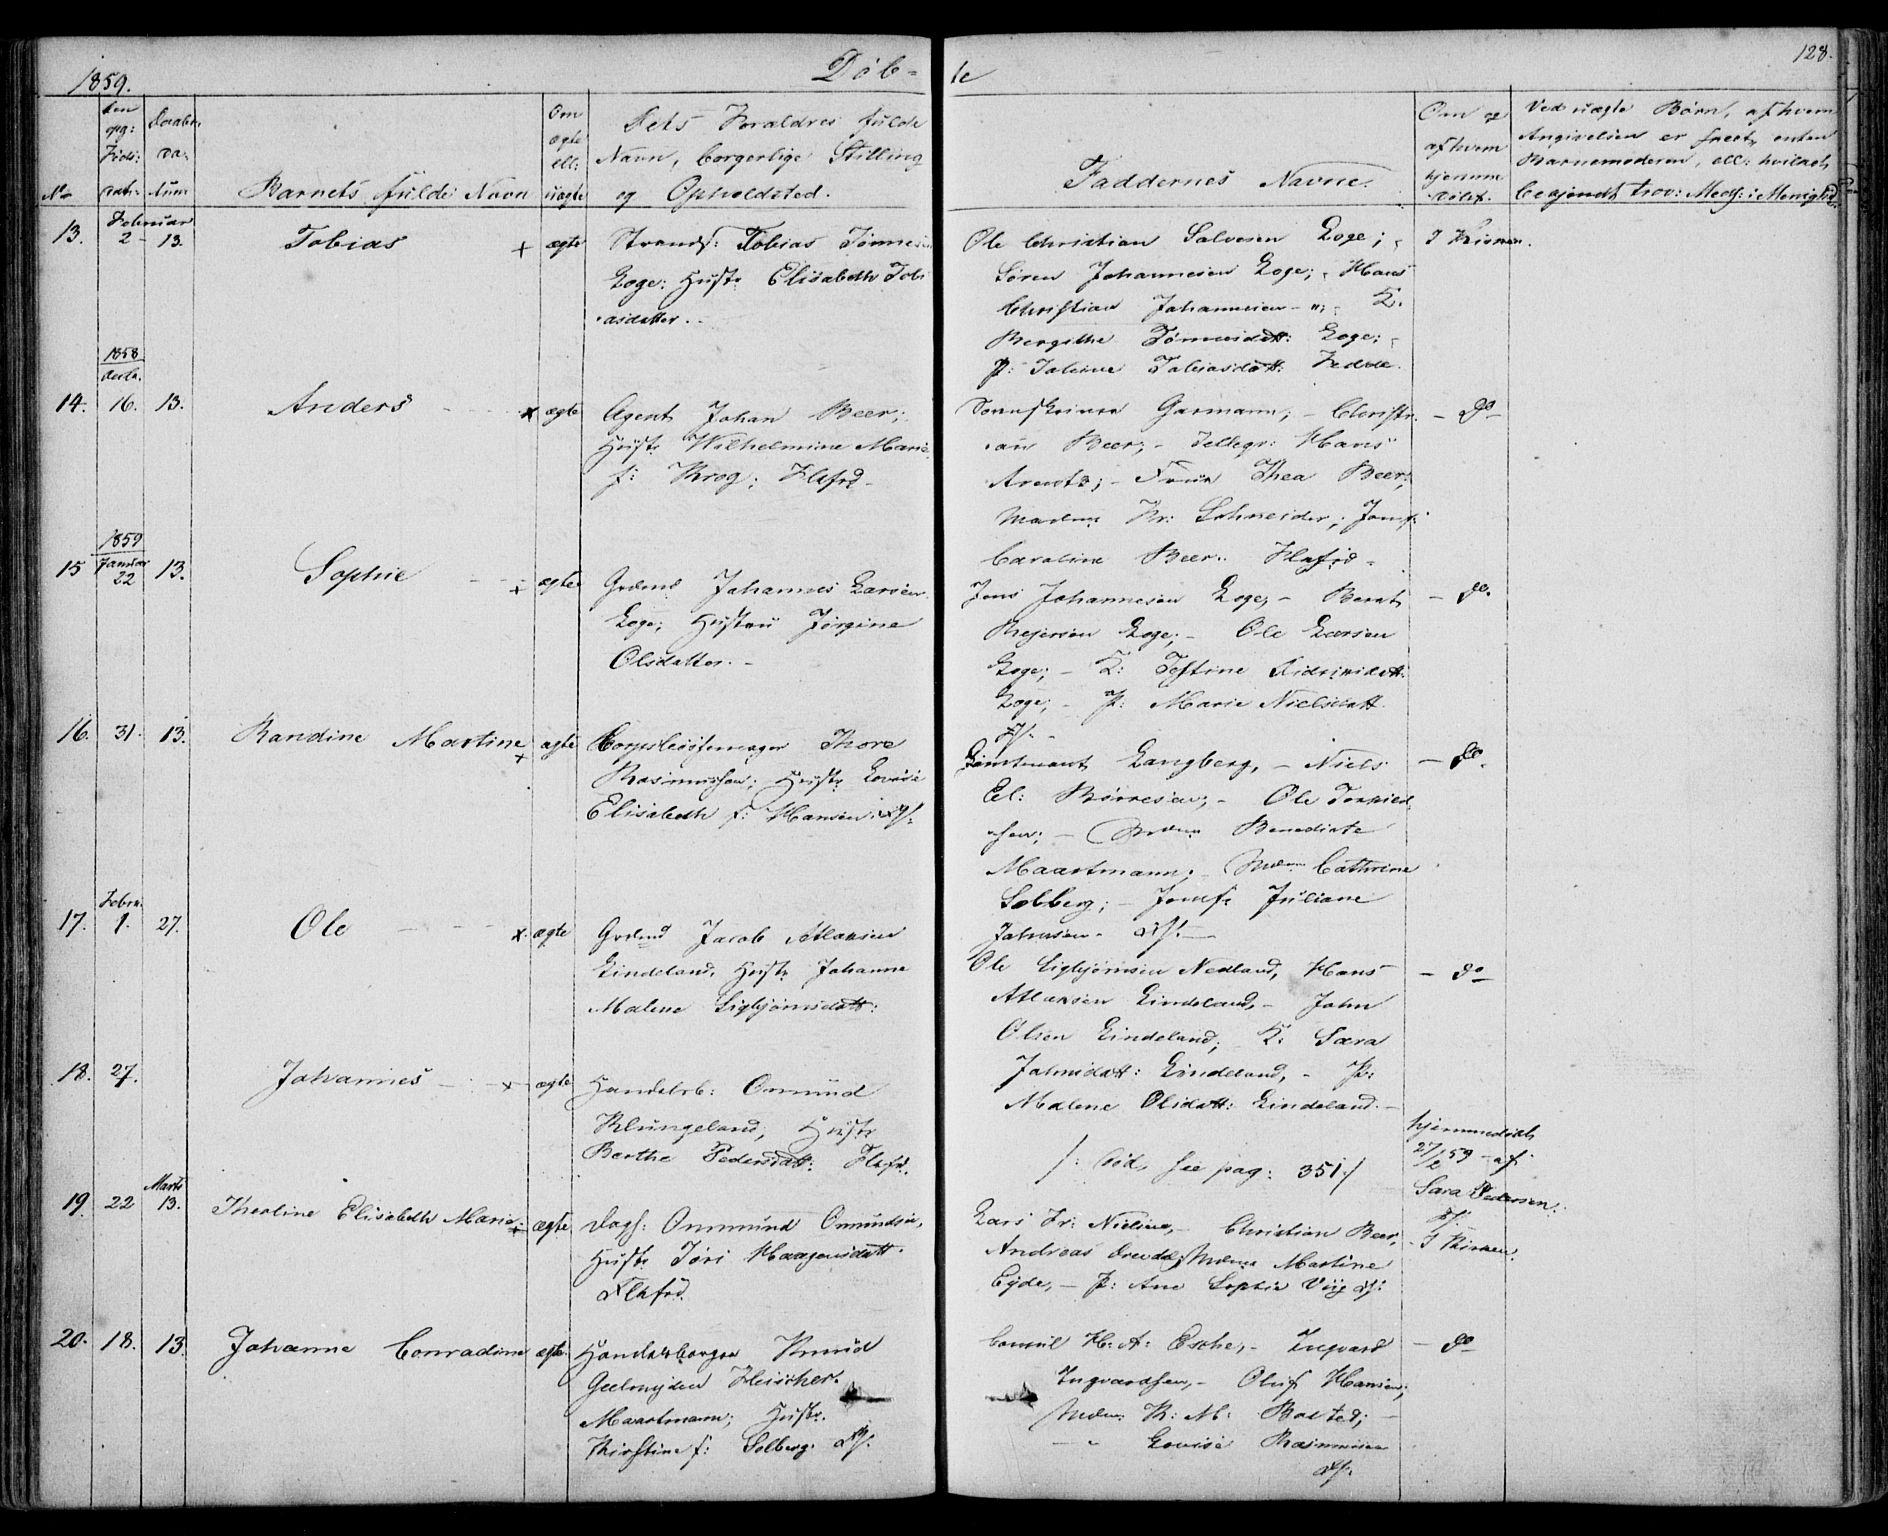 1859.
Døb-
te
128.
No
den opg: Føds: dat:
Daabs da- tum
Barnets fulde Navn
Om ægte ell: uægte
Dets Forældres fulde
Navn, borgerlige Stilling
og Opholdsted.
Faddernes Navne.
Om og af hvem hjemme døbt.
Ved uægte Børn, af hvem
Angivelsen er skeet, enten
Barnemoderen, ell: hvilket
bekjendt trov: Medl: i Menighed
13.
Februar
2 - 13.
Tobias
+ ægte
Strands: Tobias Tønnesen
Loge; Hustr Elisabeth Tobi
asdatter. -
Ole Christian Salvesen Loge; -
Søren Johannesen Loge; - Hans
Christian Johannesen - " ; - K:
Bergithe Tønnesdatt: Loge; -
P: Taline Tobiasdatt: Fedde.
I Kirken.
14.
1858
Decb.
16. 13.
Anders
x ægte
Agent Johan Beer;
Hustr Wilhelmine Marie
f: Krog; Flkfrd -
Sorenskriver Garmann; - Christi-
an Beer; - Tellegr: Hans
Arentz; - Frue Thea Beer;
Madm Kr: Schneider; Jomf:
Caroline Beer. Flkfjrd -
- Do -
15
1859
Januar
22 13.
Sophie
+ ægte
Grdmd Johannes Larsen
Loge; Hustru Jørgine
Olsdatter. -
Jens Johannesen Loge; - Bernt
Rejersen Loge; - Ole Larsen
Loge; - K: Tostine Didriksdatt:
Loge; - P: Marie Nielsdatt
Ff: -
- Do.
16. 31. 13.
Randine Martine
+ ægte
Corpsbøssemager Thore
Rasmussen; Hustr Lovise
Elisabeth f: Hansen. Ff:
Lieutnant Langberg, - Niels
El: Børresen; - Ole Torkild
sen; - Mdm Benedicte
Maartmann; - Mdm Cathrine
Solberg; - Jomf: Juliane
Johnsen - Ff: -
- Do.
17.
Febru.
1. 27.
Ole
x. ægte
Grdmd Jacob Atlaksen
Lindeland, Hustr Johanne
Malene Sigbjørnsdatt:
Ole Sigbjørnsen Nedland, Hans
Atlaksen Lindeland, - John
Olsen Lindeland; K: Sara
Johnsdatt: Lindeland, - P:
Malene Olsdatt: Lindeland. -
- Do -
18. 27.
Johannes
x - ægte
Handelsb: Ommund
Klungeland, Hustr
Berthe Pedersdatt: Flkfd.
/: død, see pag: 351:/
hjemmedøbt
27/2 59 - af
Sara Pedersen.
Ff:
19. 22
Marts
13.
Theoline Elisabeth Marie
+ ægte
Dags: Ommund Omundsen,
Hustr Tøri Haagensdatt.
Flkfrd.
Lars Fr: Nielsen, - Christian Beer,
Andreas Dredal, Mdm Martine
Eyde, - P: Ane Sophie Vég Ff:
- I Kirken.
20. 18. 13.
Johanne Conradine
ægte.
Handelsborger Knud
Geelmyden Fleischer
Maartmann; Hustr.
Kirstine f: Solberg. Ff:
Consul H: A: Esche; - Ingvard
Ingvardsen, - Oluf Hansen;
Mdm: K: M: Balsted; -
- " Lovise Rasmussen
Ff:
- Do -